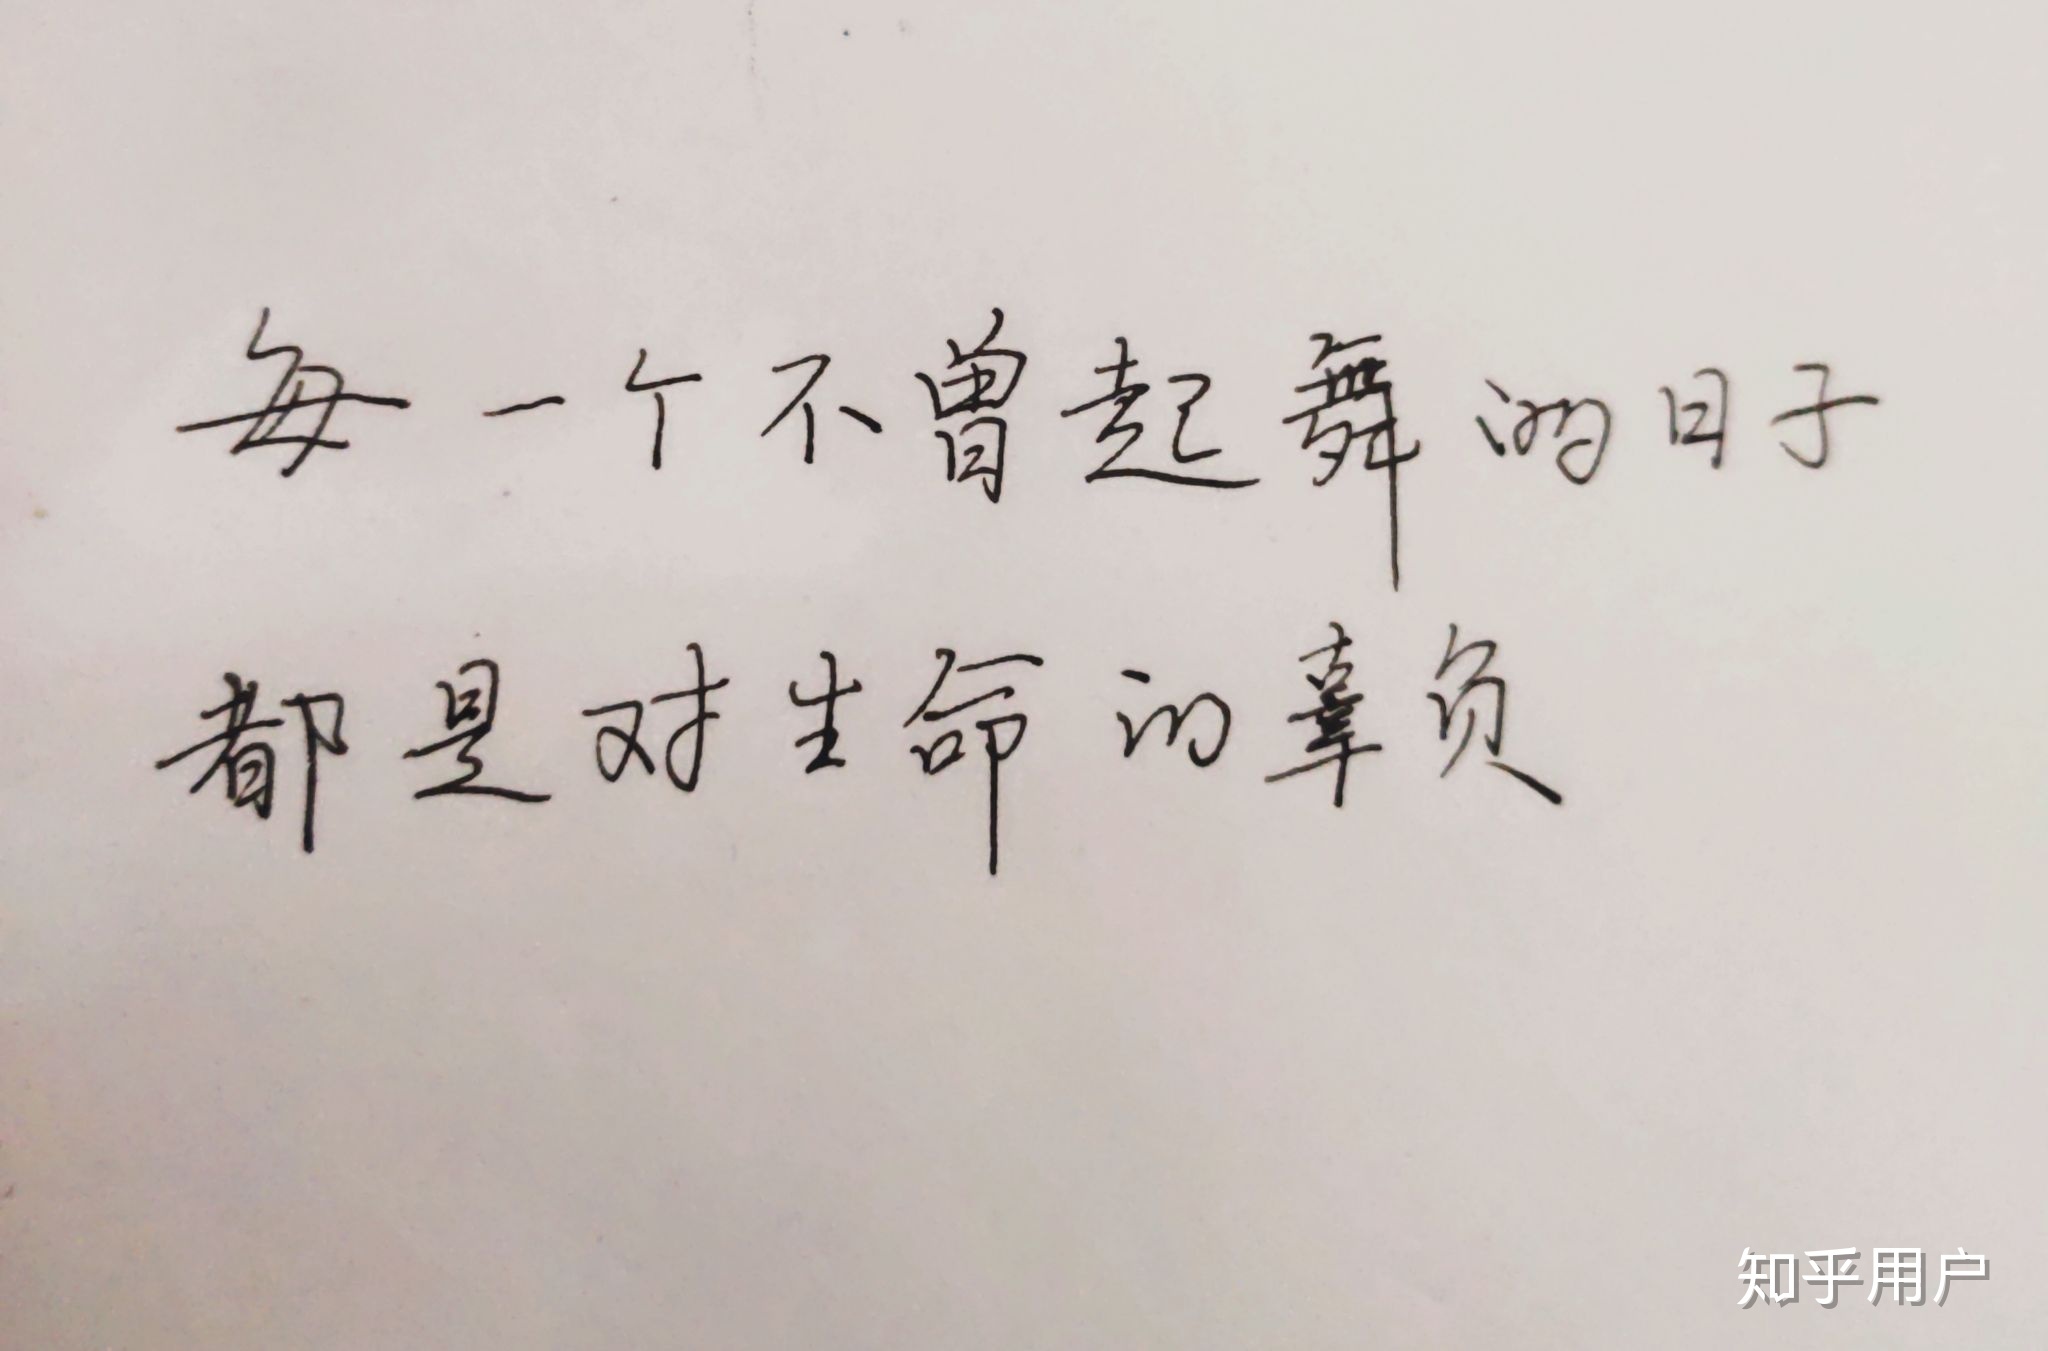 每一个不曾起舞的日子
都是对生命的辜负
知乎用户